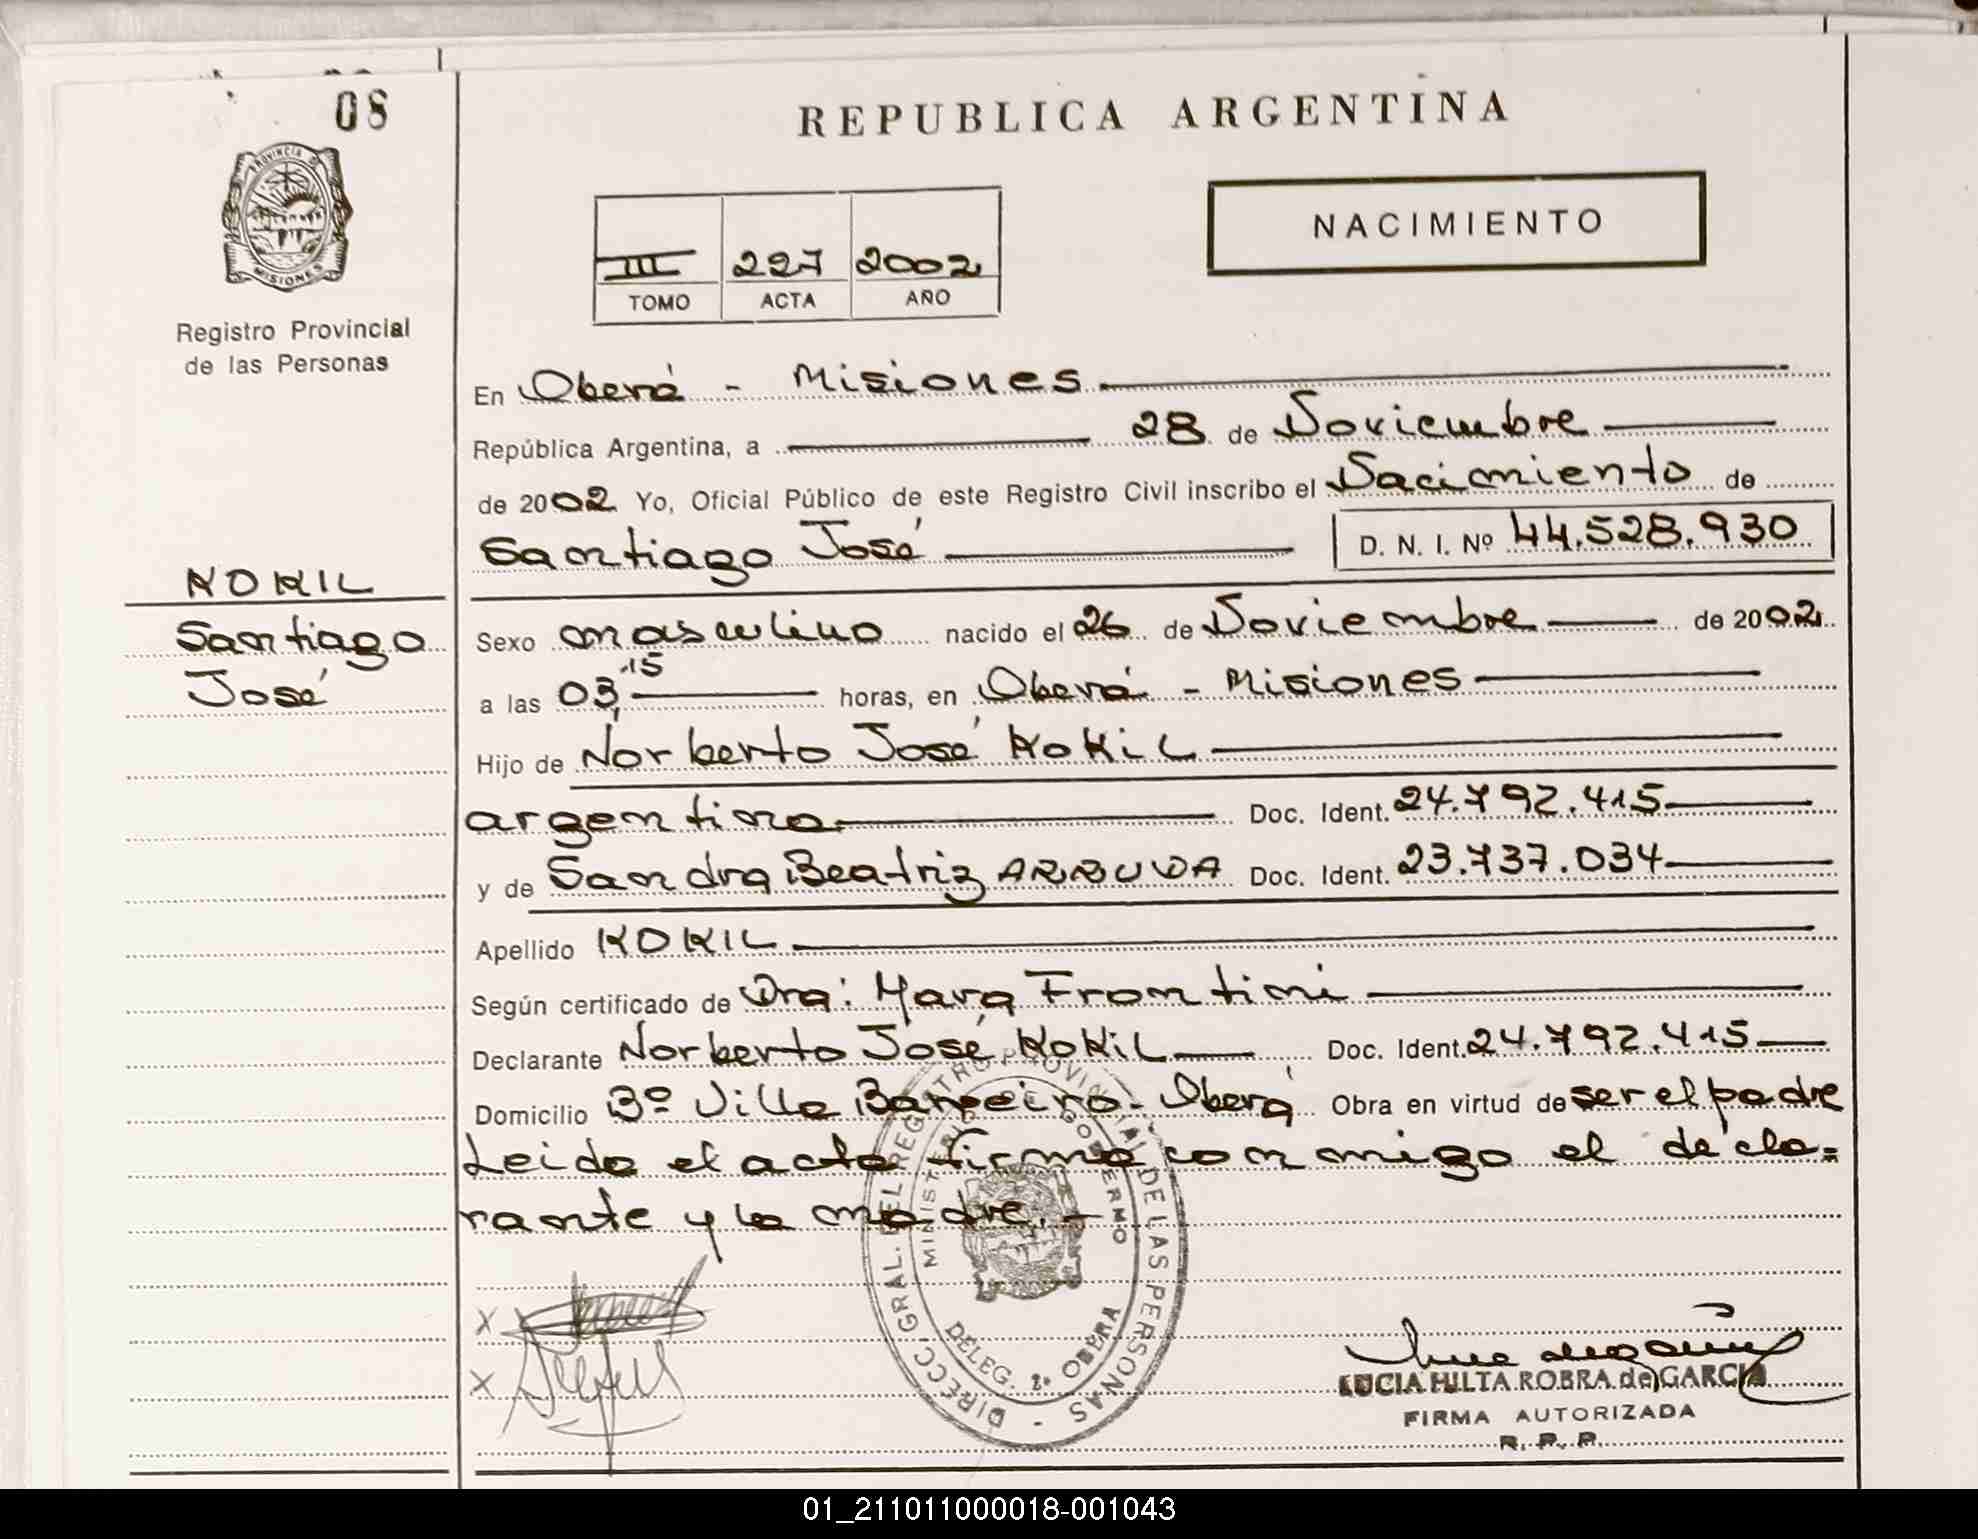 08
PROVINCIA DE
MISIONES
Registro Provincial
de las Personas
KOKIL
Santiago
José
REPUBLICA ARGENTINA
III 227 2002
TOMO ACTA AÑO
NACIMIENTO
En Oberá - Misiones
República Argentina, a 28 de Noviembre
de 2002 Yo, Oficial Público de este Registro Civil inscribo el Nacimiento de
Santiago José D. N. I. Nº 44.528.930
Sexo masculino nacido el 26 de Noviembre de 2002
a las 03,15 horas, en Oberá - Misiones
Hijo de Norberto José KOKIL
argentino Doc. Ident. 24.792.415
y de Sandra Beatriz ARRUDA Doc. Ident. 23.737.034
Apellido KOKIL
Según certificado de Dra: Mara Frontini
Declarante Norberto José KOKIL Doc. Ident. 24.792.415
Domicilio Bº Villa Barreiro - Oberá Obra en virtud de ser el padre
Leido el acta firma conmigo el decla=
rante y la madre.-
DIRECC. GRAL. DEL REGISTRO PROVINCIAL DE LAS PERSONAS -
MINISTERIO GOBIERNO
DELEG. 2º OBERA
X
X
LUCIA HILTA ROBRA de GARCIA
FIRMA AUTORIZADA
R. P. P.
01_211011000018-001043